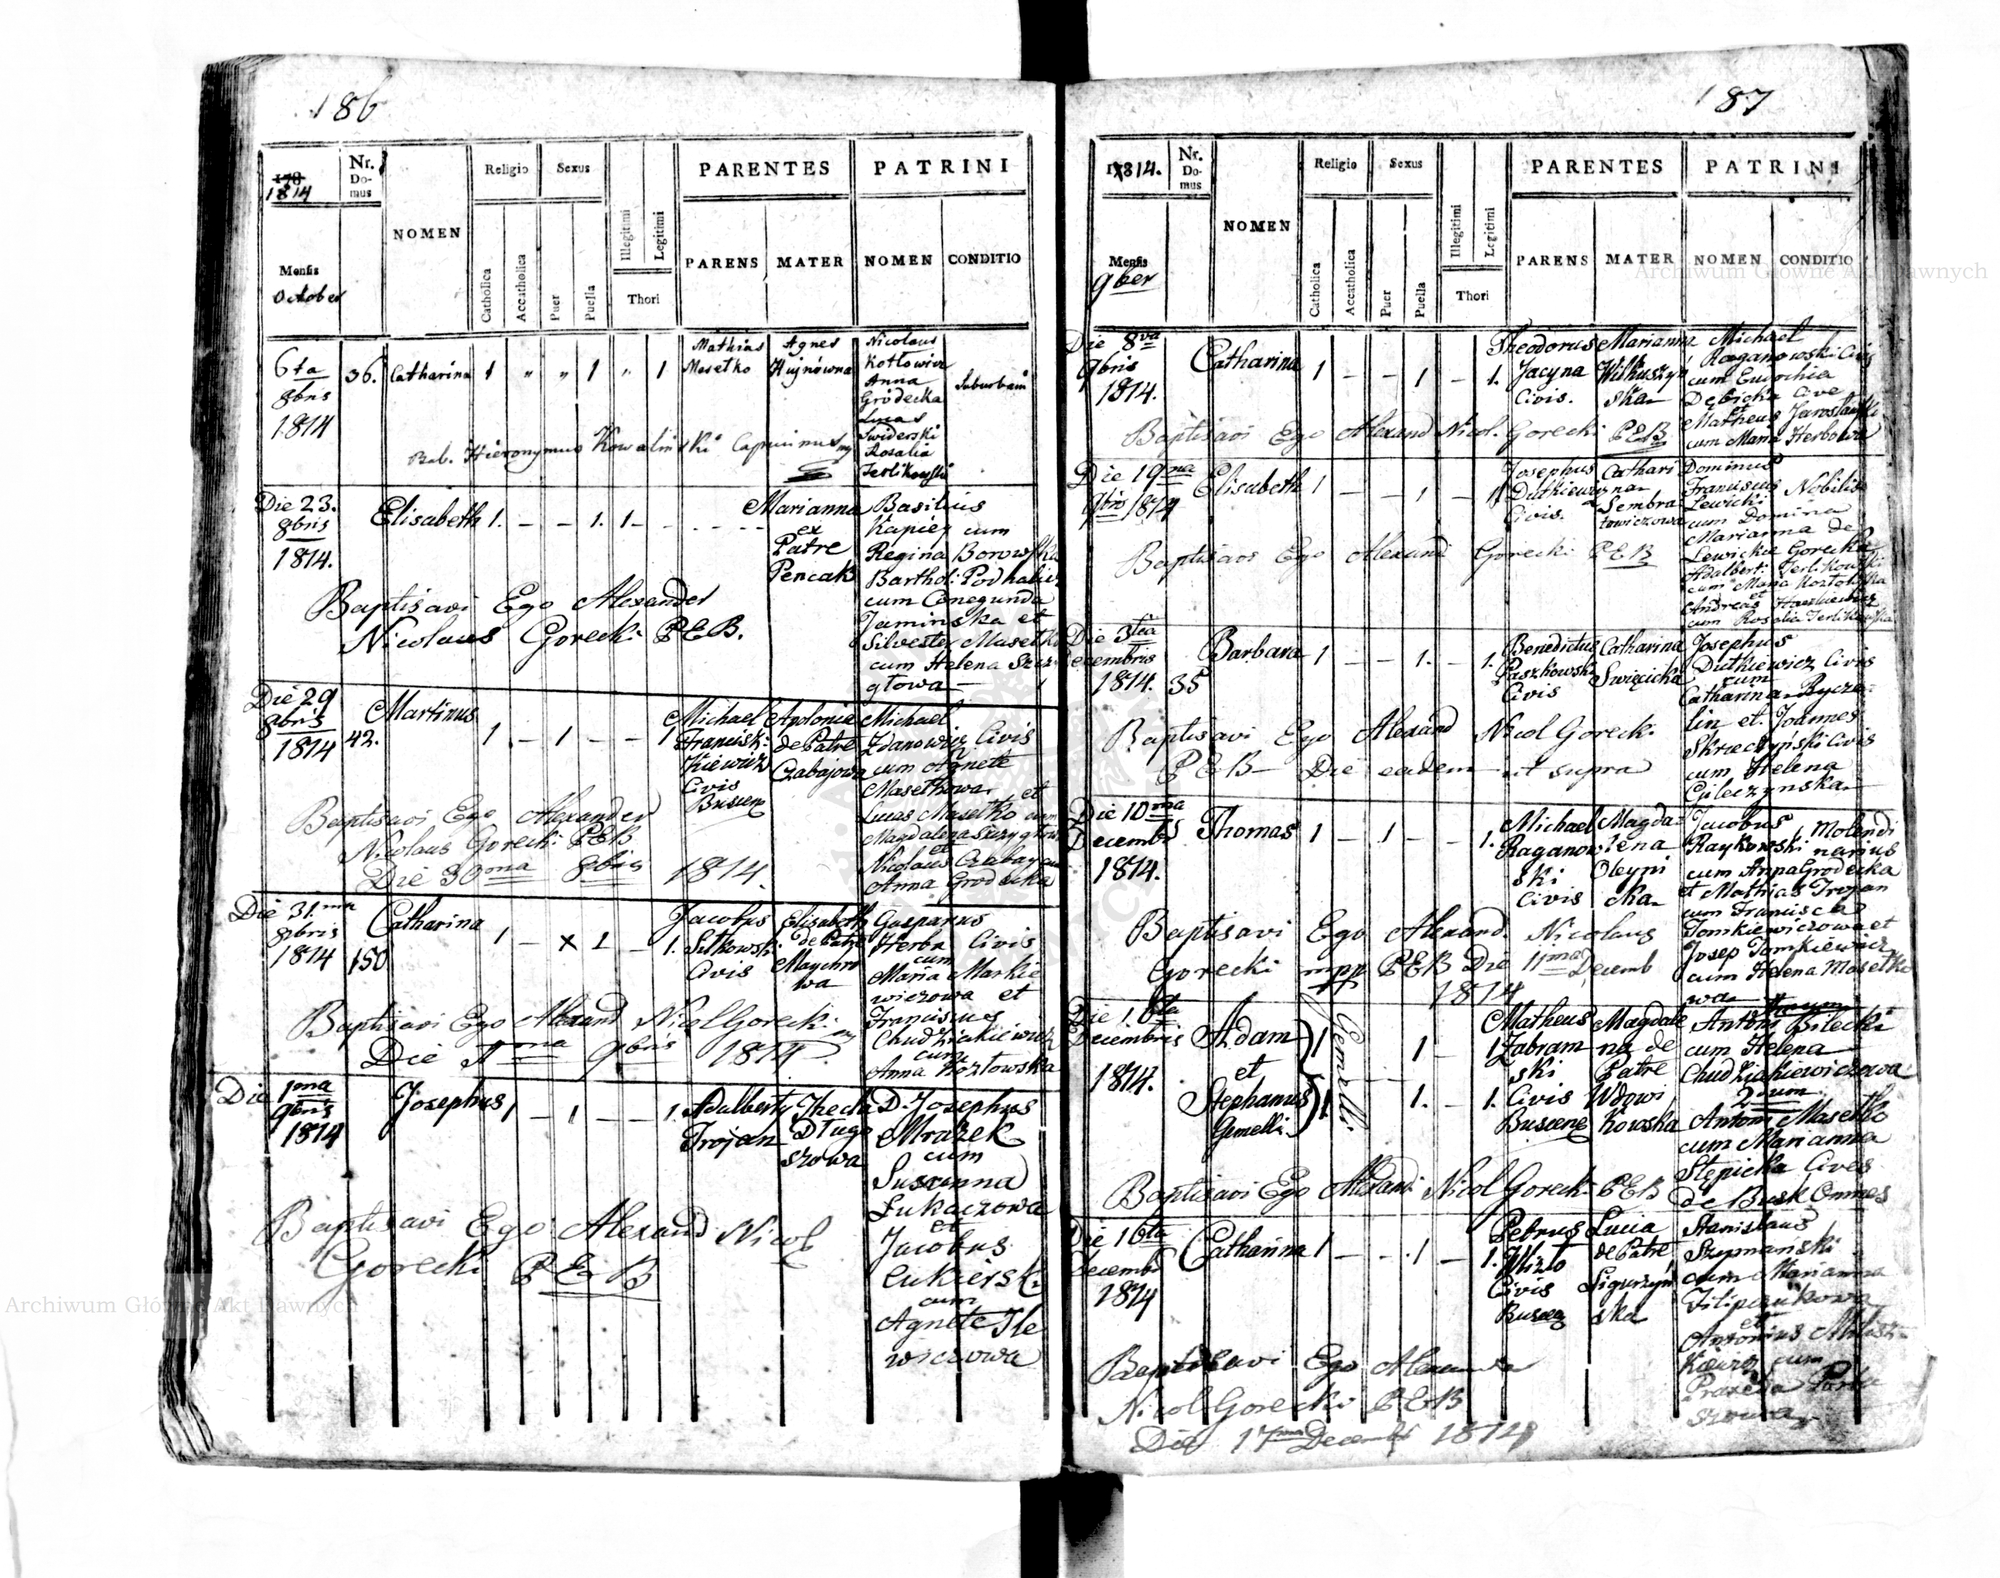 186
178
1814
Nr.
Do-
mus
NOMEN
Religio
Sexus
PARENTES
PATRINI
Catholica
Accatholica
Puer
Puella
Illegitimi
Legitimi
Thori
PARENS
MATER
NOMEN
CONDITIO
Mensis
October
6ta
8bris
1814
36.
Catharina
1 " " 1 " 1
Mathias
Masetko
Agnes
Hujnówna
Nicolaus
Kotłowicz
Anna
Grodecka
Lucas
Swiderski
Rosalia
Suburbani
Bab. Hieronymus Kowalinski Capucinus mp
Die 23.
8bris
1814.
Elisabeth
1. - - 1. 1. -
Marianna
ex
Patre
Pencak
Basilius
Kapiey cum
Regina Borowska
Barthol: Podhalicz
cum Conegunda
Jaminska et
Silvester Masetko
cum Helena Szczy
głowa
Baptisavi Ego Alexander
Nicolaus Gorecki PEB.
Die 29
8bris
1814
42.
Martinus
1 - 1 - - 1
Michael
Francisz-
kiewicz
Civis
Buscen
Apolonia
de Patre
Czabajowa
Michael
Zdanowicz Civis
cum Agnete
Masetkowa et
Lucas Masetko cum
Magdalena Szczygłowa
et
Nicolaus Czabay cum
Anna Grodecka
Baptisavi Ego Alexander
Nicolaus Gorecki PEB
Die 30ma 8bris 1814.
Die 31.ma
8bris
1814
150
Catharina
1 - x 1 - 1.
Jacobus
Sitkowski
Civis
Elisabeth
de Patre
Maychro
wa
Gasparus
Herba Civis
cum
Maria Markie
wiczowa et
Franciscus
Chudziakiewicz
cum
Anna Kozłowska
Baptisavi Ego Alexand Nicol Gorecki mp
Die 1ma 9bris 1814.
Die 1ma
9bris
1814
Josephus
1 - 1 - - 1.
Adalberty
Trojan
Thecla
Długo
szowa
D. Josephus
Mrazek
cum
Susanna
Łukaczowa
et
Jacobus
Cukierski
cum
Agnete Ile
wiczowa
Baptisavi Ego Alexand Nicol
Gorecki PEB
187
1814.
Nr.
Do-
mus
NOMEN
Religio
Sexus
PARENTES
PATRINI
Catholica
Accatholica
Puer
Puella
Illegitimi
Legitimi
Thori
PARENS
MATER
NOMEN
CONDITIO
Mensis
9ber
Die 8va
9bris
1814.
Catharina
1 - - 1 - 1.
Theodorus
Jacyna
Civis.
Marianna
Wilkuszyń
ska
Michael
Raganowski Civis
cum Eudochia
Dębicka Cive
et
Matheus Jarosławski
cum Maria Herbowa
Baptisavi Ego Alexand Nicol. Gorecki PEB
Die 19na
9bris 1814
Elisabeth
1 - - 1 - 1
Josephus
Dutkiewicz
Civis.
Cathari
na
Sembra
towiczowa
Dominus
Franciscus Nobilis
Lewicki
cum Domina
Marianna de
Lewickie Gorecka
Adalbert: Terlikowski
cum Maria Kozłowska
et
cum Rosalia Terlikowska
Baptisavi Ego Alexand Gorecki PEB
Die 3tia
Decembris
1814.
35
Barbara
1 - - 1. - 1.
Benedictus
Paszkowski
Civis
Catharina
Swięcicka
Josephus
Dutkiewicz Civis
cum
Catharina Rycza
lin et Joannes
Skrzeczyński Civis
cum Helena
Gileczynska
Baptisavi Ego Alexand Nicol Gorecki
PEB Die eadem ut supra
Die 10ma
Decembris
1814.
Thomas
1 - 1 - - 1.
Michael
Raganow
ski
Civis
Magda
lena
Oleyni
cka
Jacobus
Raykowski Molendi
narius
cum Anna Grodecka
et Mathias Trojan
cum Francisca
Tomkiewiczowa et
Josep Tomkiewicz
cum Helena Masetko
wa
Baptisavi Ego Alexand. Nicolaus
Gorecki mpp PEB Die 11ma Decemb
1814
Die 16ta
Decembris
1814.
Adam
et
Stephanus
Gemelli.
Gemelli
1 1 - 1
1 1. - 1.
Matheus
Zabram
ski
Civis
Buscens
Magdale
na de
Patre
Wdowi
kowska
Antoni Bilecki
cum Helena
Chudziakiewiczowa
2dum
Antoni Masetko
cum Marianna
Stepicka Cives
de Busk Omnes
Baptisavi Ego Alexand Nicol Gorecki PEB
Die 16ta
Decemb
1814
Catharina
1 - - 1 - 1.
Petrus
Mizlo
Civis
Buscen
Lucia
de Patre
Ligurzyń
ska
Stanislaus
Szymański
cum Marianna
Filipczukowa
et
Antonius Milasz
kiewicz cum
Praxeda
Baptisavi Ego Alexand
Nicol Gorecki PEB
Die 17ma Decemb 1814
Archiwum Główne Akt Dawnych
Archiwum Główne Akt Dawnych